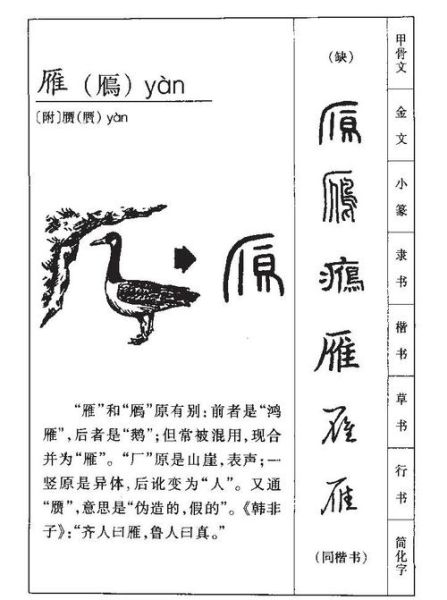 雁（鴈）yàn
〔附〕赝（贋）yàn
“雁”和“鴈”原有别：前者是“鸿
雁”，后者是“鹅”；但常被混用，现合
并为“雁”。“厂”原是山崖，表声；一
竖原是异体，后讹变为“人”。又通
“赝”，意思是“伪造的，假的”。《韩非
子》：“齐人曰雁，鲁人曰真。”
（缺）
雁
雁
雁
（同楷书）
甲骨文
金文
小篆
隶书
楷书
草书
行书
简化字